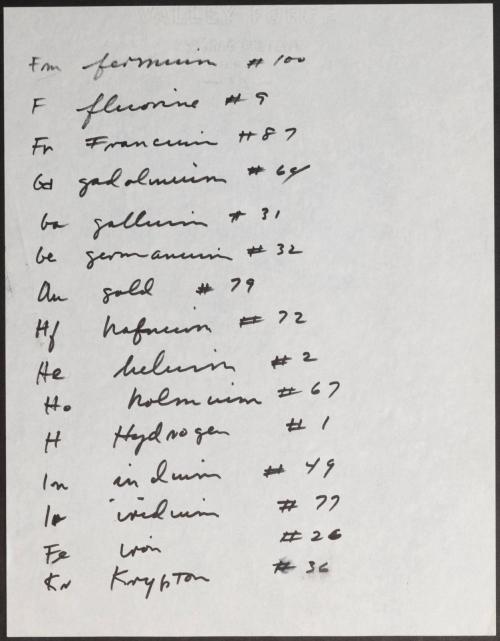 VALLEY FORGE
Fm fermium # 100
F fluorine # 9
Fr Francium # 87
Gd gadolinium # 64
Ga gallium # 31
Ge germanium # 32
Au gold # 79
Hf hafnium # 72
He helium # 2
Ho holmium # 67
H Hydrogen # 1
In indium # 49
Ir iridium # 77
Fe iron # 26
Kr Krypton # 36